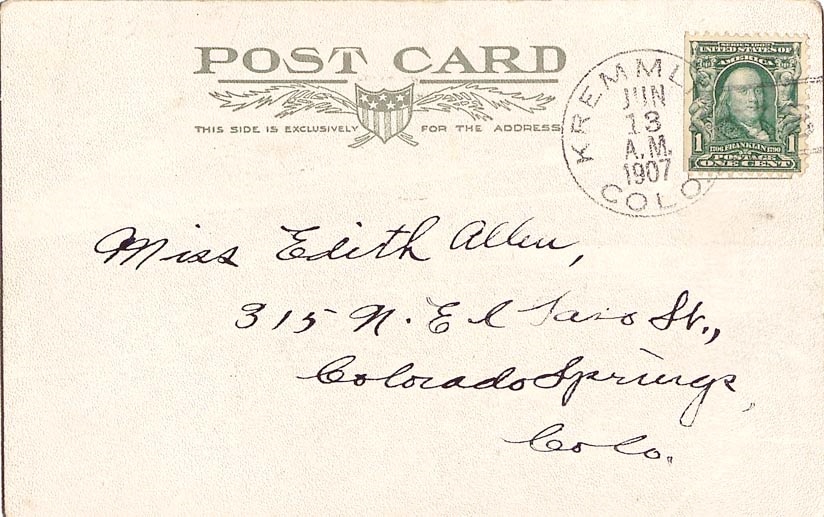 POST CARD
THIS SIDE IS EXCLUSIVELY FOR THE ADDRESS
SERIES 1902
UNITED STATES OF
AMERICA
1 1706 FRANKLIN 1790 1
POSTAGE
ONE CENT
KREMML
JUN
13
A.M.
1907
COLO.
Miss Edith Allen,
315 N. El Paso St.,
Colorado Springs,
Colo.